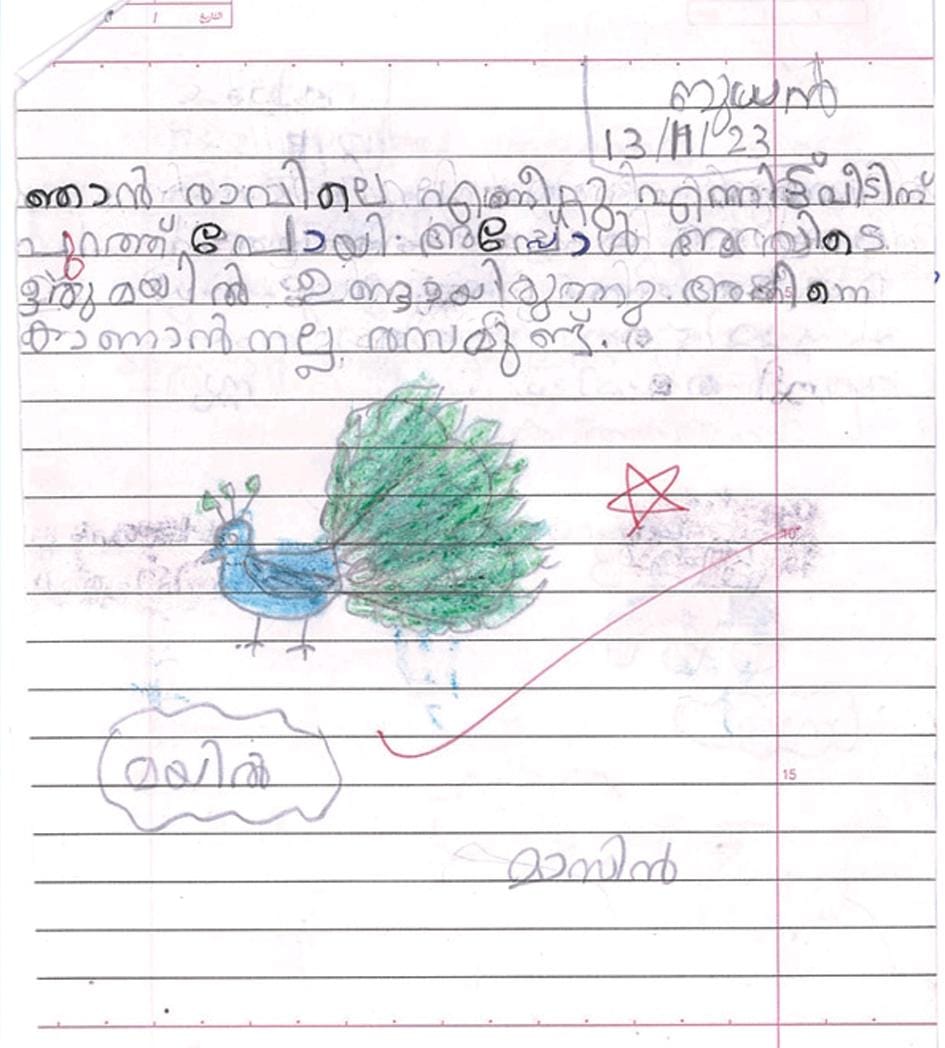 ബുധൻ
13/11/23
ഞാൻ രാവിലെ എണീറ്റു എന്നിട്ട് വീടിന്
പുറത്ത് പോയി. അപ്പോൾ അവിടെ
ഒരു മയിൽ ഉണ്ടായിരുന്നു. അതിനെ
കാണാൻ നല്ല രസമുണ്ട്.
10
മയിൽ
15
മാസിൻ